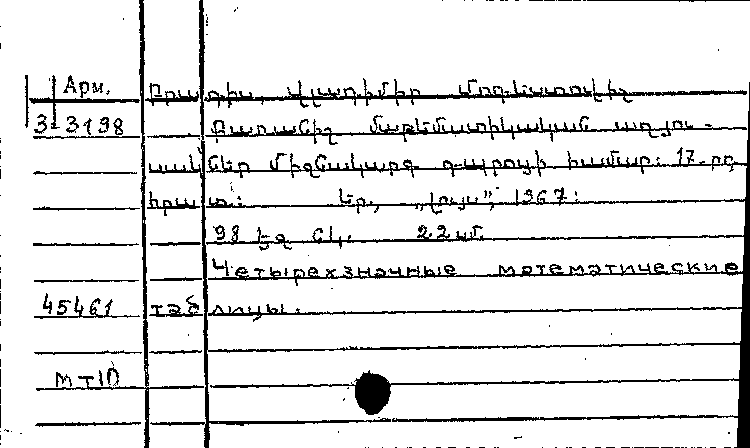 Арм. Բրադիս, Վլադիմիր Մոդեստովիչ
3-3198 Քառանիշ մաթեմատիկական աղյու-
սակներ միջնակարգ դպրոցի համար: 17-րդ
հրատ: Եր., „Լույս", 1967:
98 էջ 22 սմ.
Четырехзначные математические
45461 таблицы.